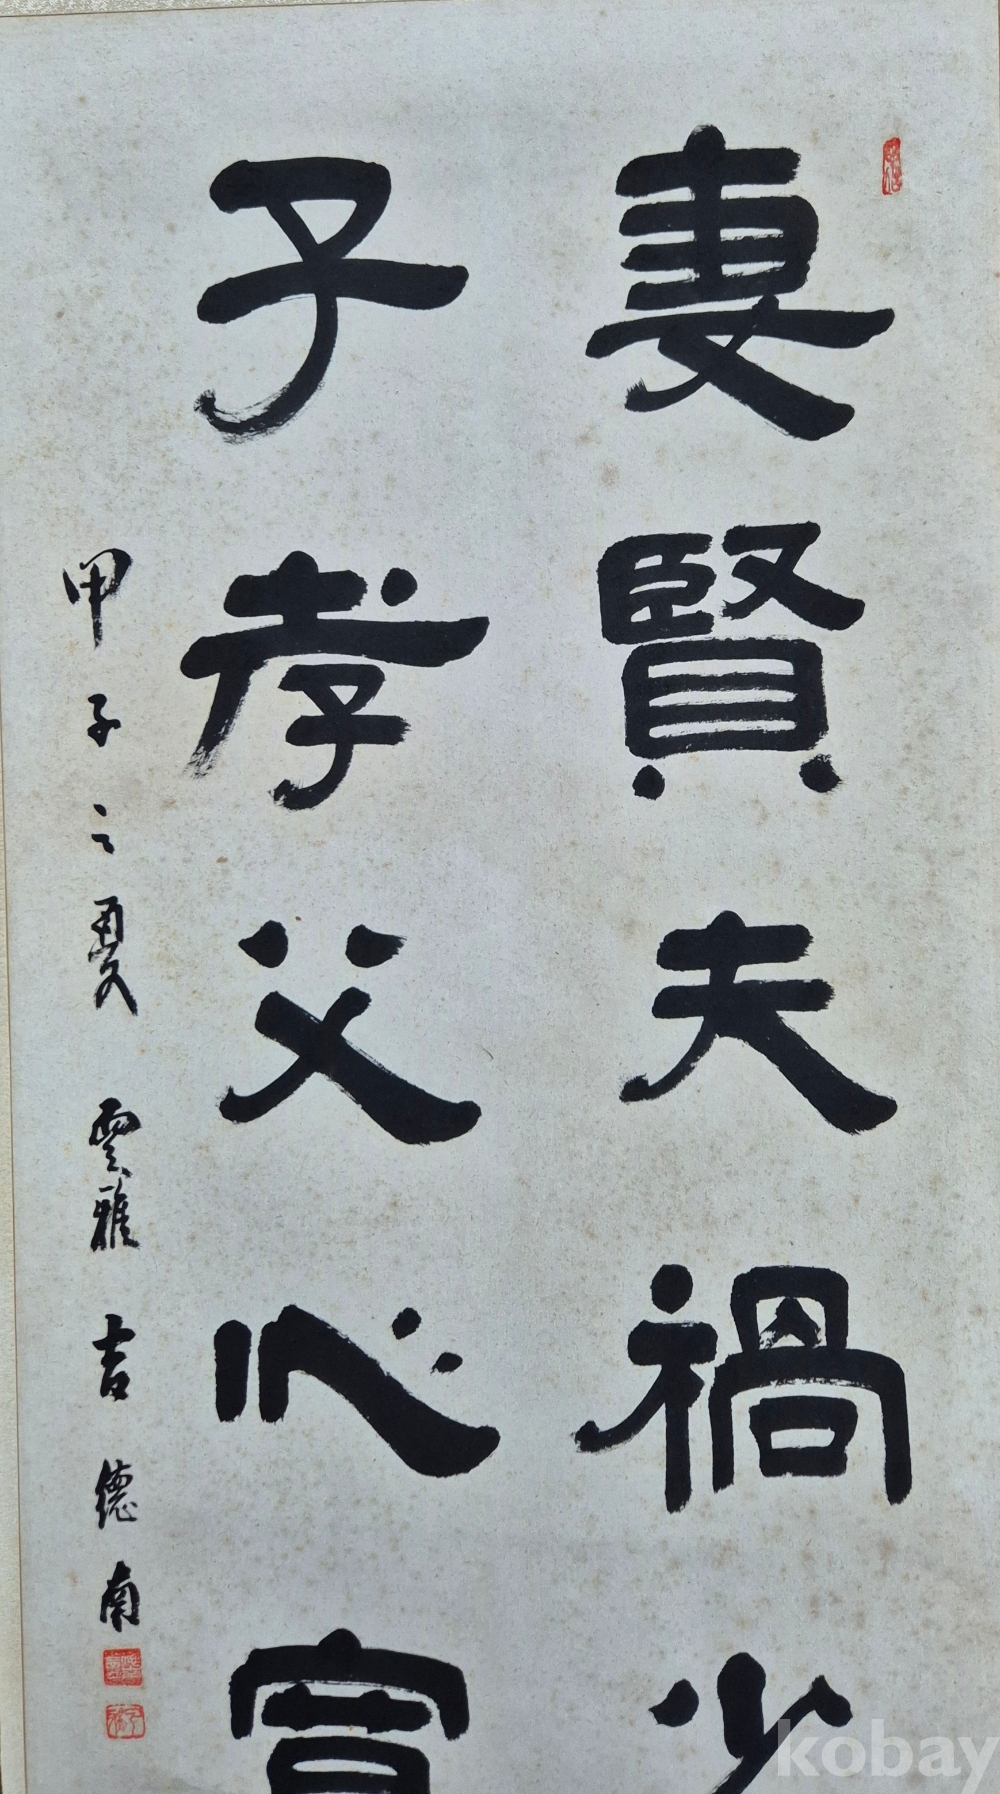 妻賢夫禍少
子孝父心寬
甲子之夏 雲雅 吉德南
kobay